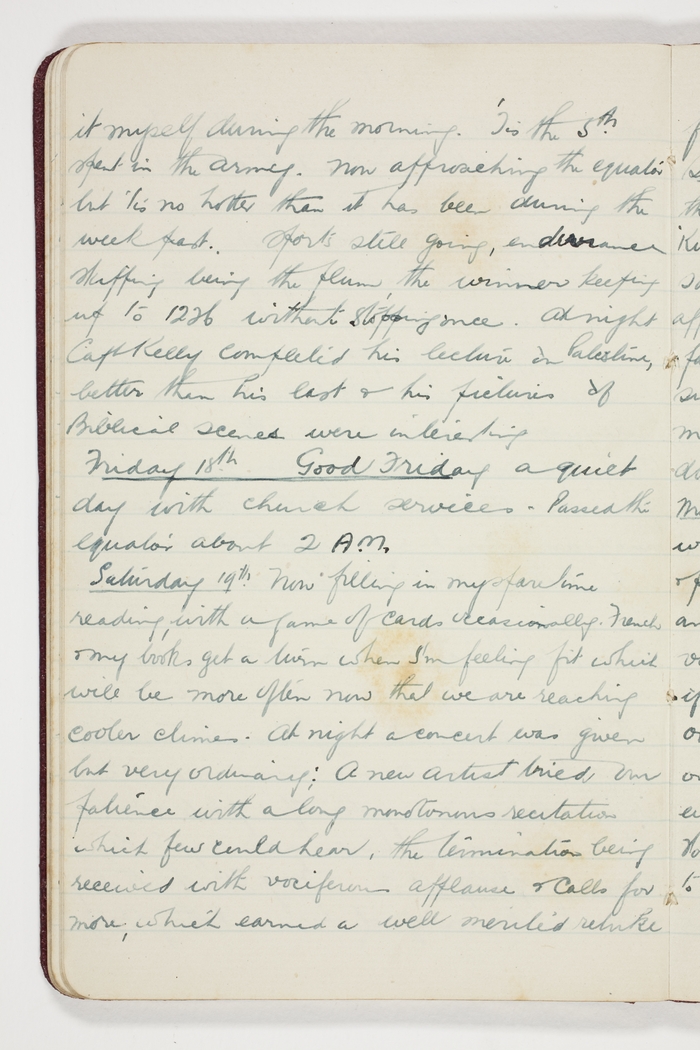 it myself during the morning. 'Tis the 5th
spent in the army. Now approaching the equator
but 'tis no hotter than it has been during the
week past. Sports still going, endurance
skipping being the plum the winner keeping
up to 1226 without stopping once. At night
Capt Kelly completed his lecture on Palestine,
better than his last & his pictures of
Biblical scenes were interesting
Friday 18th Good Friday a quiet
day with church services. Passed the
equator about 2 A.M.
Saturday 19th Now filling in my spare time
reading, with a game of cards occasionally. French
& my books get a turn when I'm feeling fit which
will be more often now that we are reaching
cooler climes. At night a concert was given
but very ordinary; A new artist tried our
patience with a long monotonous recitation
which few could hear, the termination being
received with vociferous applause & calls for
more, which earned a well merited rebuke